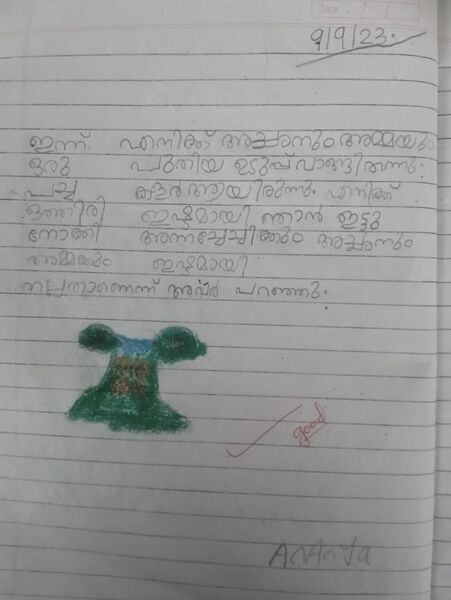 9/9/23.
ഇന്ന് എനിക്ക് അച്ഛനും അമ്മയും
ഒരു പുതിയ ഉടുപ്പ് വാങ്ങി തന്നു.
പച്ച കളർ ആയിരുന്നു. എനിക്ക്
ഒത്തിരി ഇഷ്ടമായി ഞാൻ ഇട്ടു
നോക്കി അന്നച്ചേച്ചിക്കും അച്ഛനും
അമ്മക്കും ഇഷ്ടമായി
നല്ലതാണെന്ന് അവർ പറഞ്ഞു.
good
Ananya